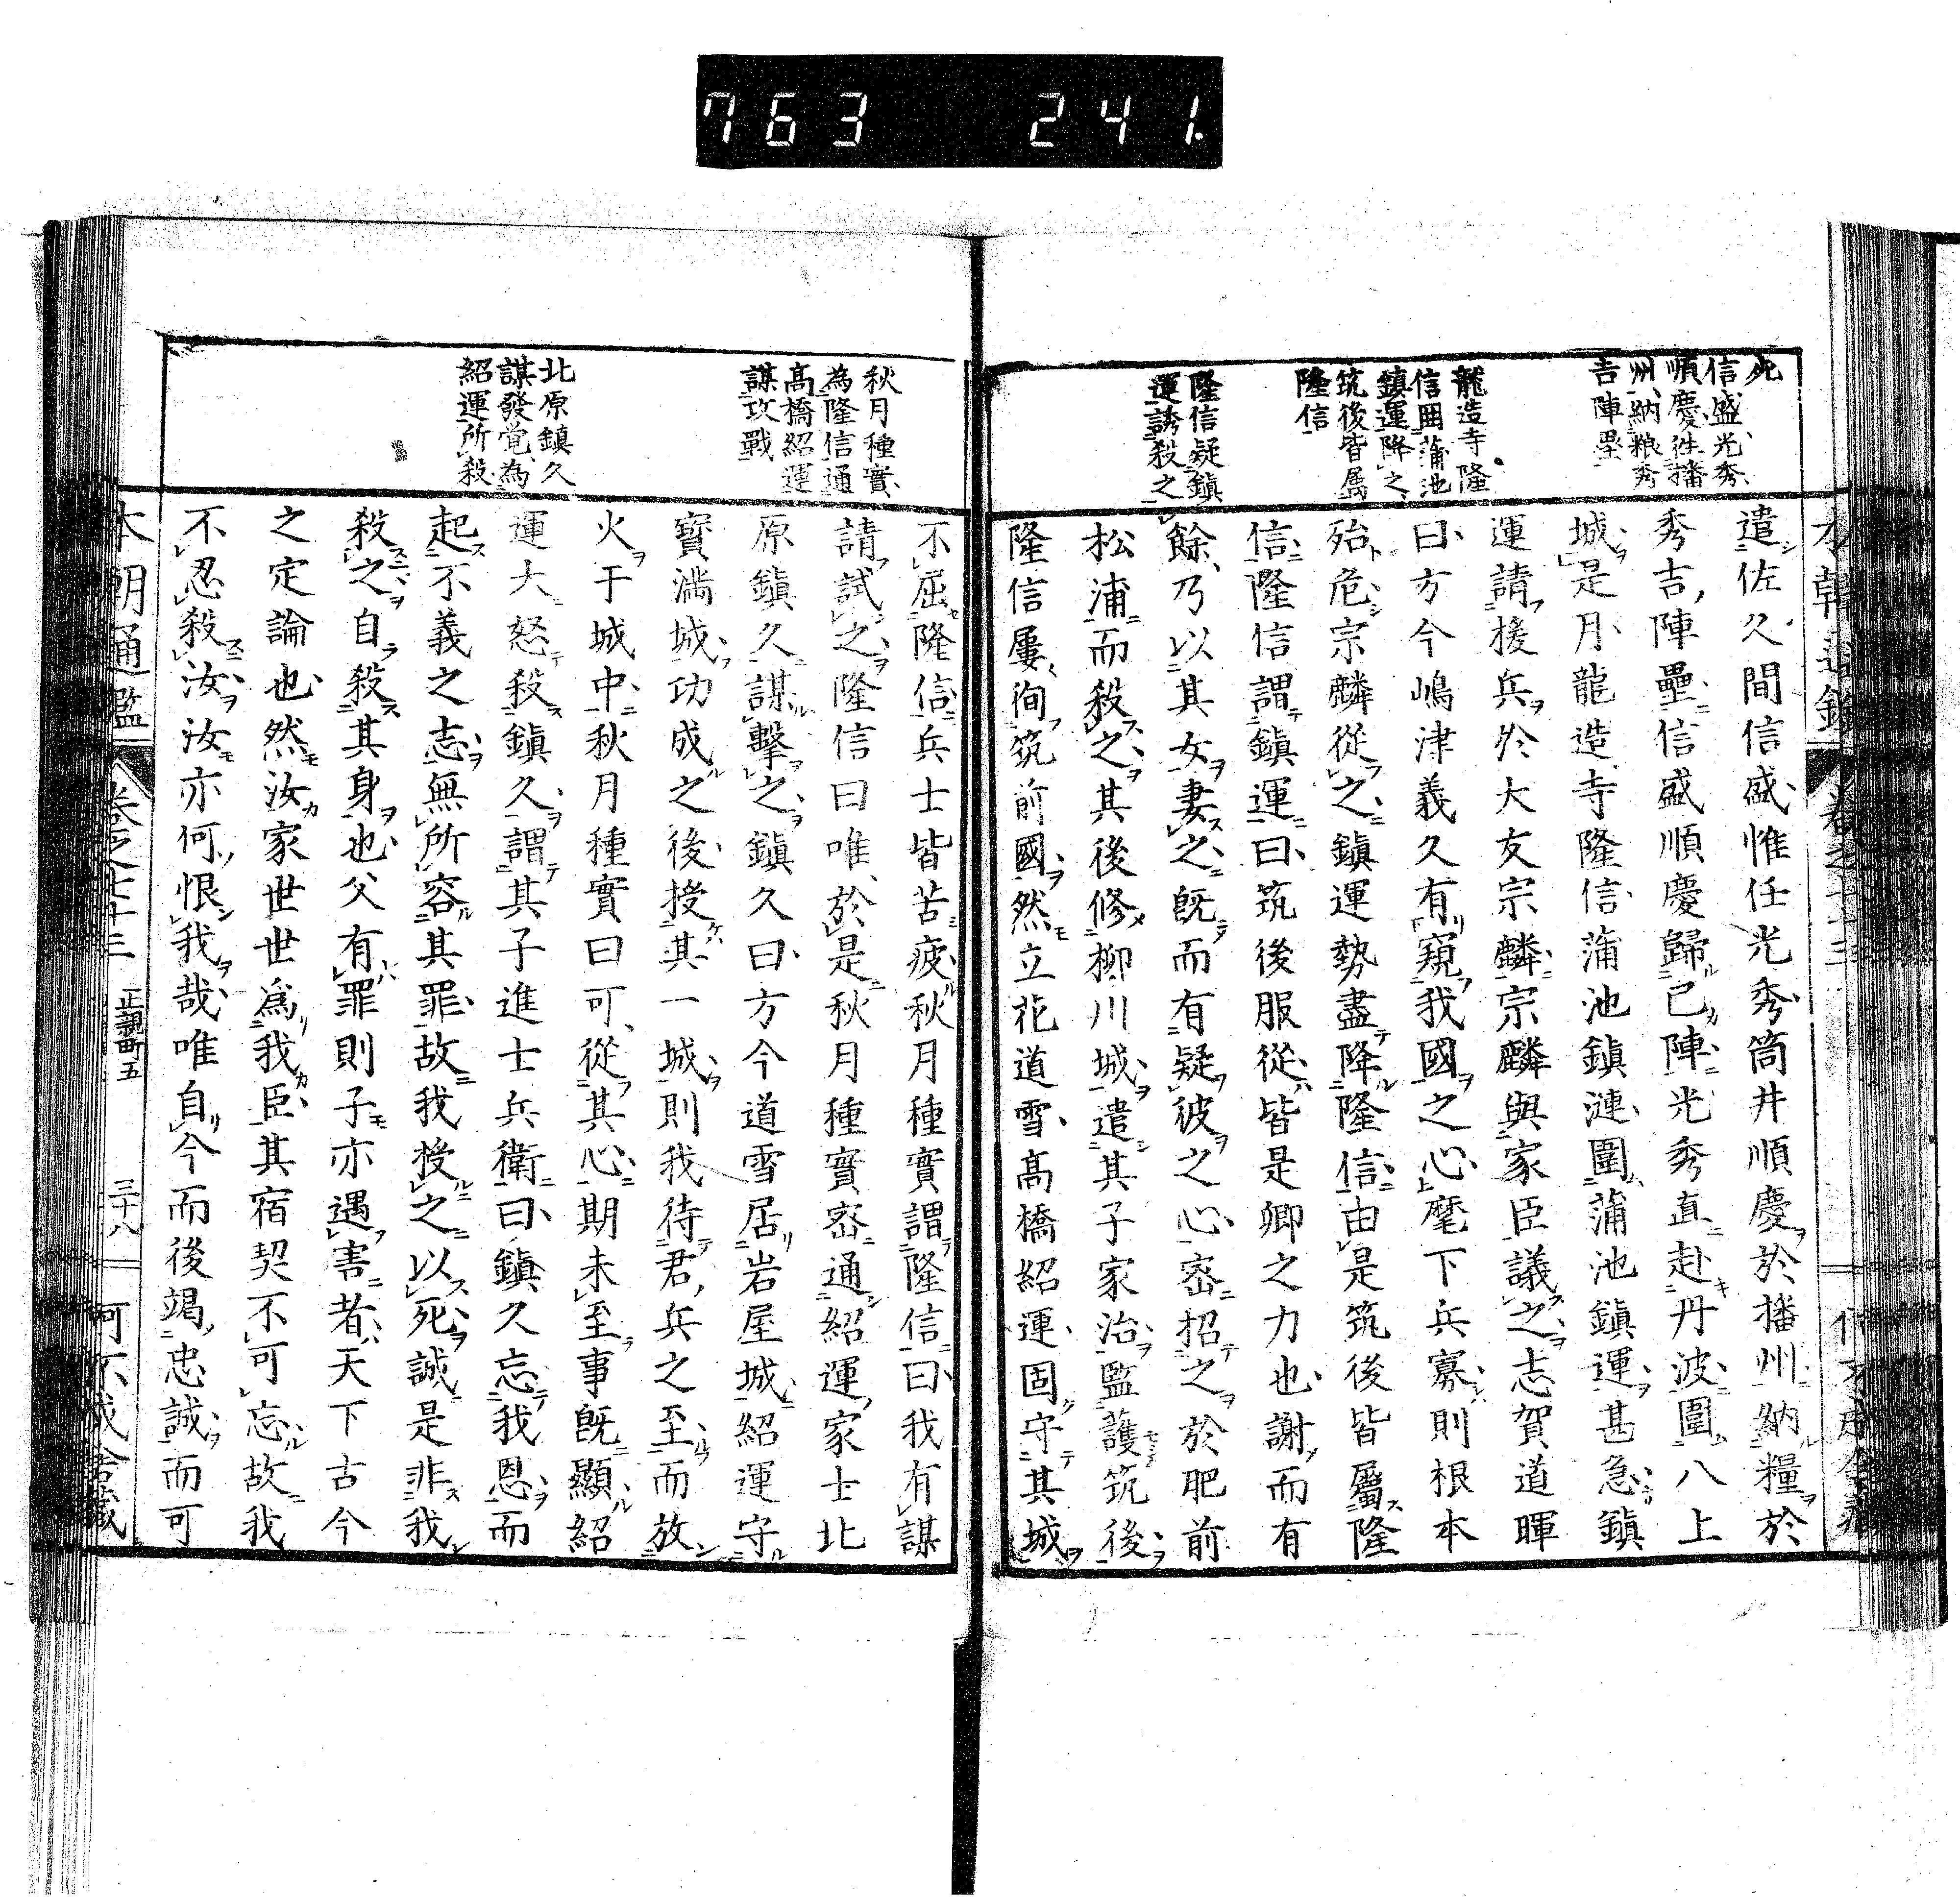 763 241.
死
信盛光秀
順慶徃播
州納粮秀
吉陣壘
龍造寺隆
信囲蒲池
鎮運降之
筑後皆属
隆信
隆信疑鎮
運誘殺之
遣佐久間信盛惟任光秀筒井順慶於播州納糧於
秀吉陣壘信盛順慶歸己陣光秀直赴丹波圍八上
城是月龍造寺隆信蒲池鎮漣圍蒲池鎮運甚急鎮
運請援兵於大友宗麟宗麟與家臣議之志賀道暉
曰方今嶋津義久有窺我國之心麾下兵寡則根本
殆危宗麟從之鎮運勢盡降隆信由是筑後皆屬隆
信隆信謂鎮運曰筑後服從皆是卿之力也謝而有
餘乃以其女妻之既而有疑彼之心密招之於肥前
松浦而殺之其後修柳川城遣其子家治監護筑後
隆信屢徇筑前國然立花道雪高橋紹運固守其城
秋月種實
為隆信通
高橋紹運
謀攻戰
北原鎮久
謀發覚為
紹運所殺
不屈隆信兵士皆苦疲秋月種實謂隆信曰我有謀
請試之隆信曰唯於是秋月種實密通紹運家士北
原鎮久謀擊之鎮久曰方今道雪居岩屋城紹運守
寶滿城功成之後授其一城則我待君兵之至而放
火于城中秋月種實曰可從其心期未至事既顯紹
運大怒殺鎮久謂其子進士兵衛曰鎮久忘我恩而
起不義之志無所容其罪故我授之以死誠是非我
殺之自殺其身也父有罪則子亦遇害者天下古今
之定論也然汝家世世爲我臣其宿契不可忘故我
不忍殺汝汝亦何恨我哉唯自今而後竭忠誠而可
本朝通鑑 卷之七十三 正親町五 三十八